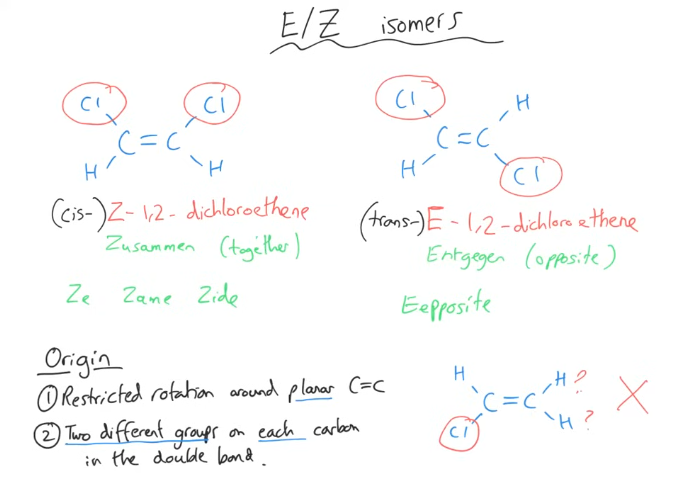 E/Z isomers
Cl Cl
C=C
H H
Cl H
C=C
H Cl
(cis-) Z-1,2-dichloroethene
Zusammen (together)
Ze Zame Zide
(trans-) E-1,2-dichloroethene
Entgegen (opposite)
Eepposite
Origin
① Restricted rotation around planar C=C
② Two different groups on each carbon
in the double bond.
H H?
C=C
Cl H ?